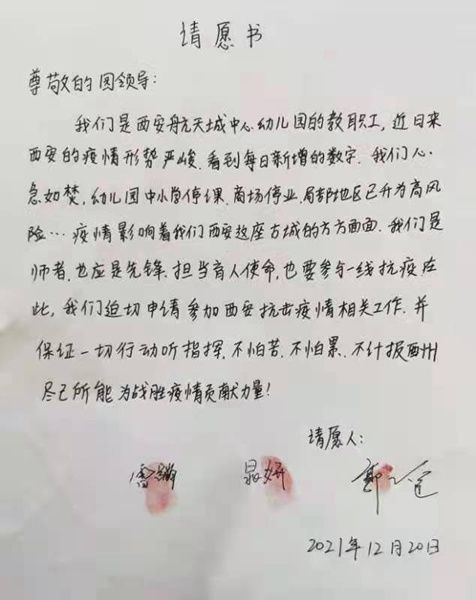 请愿书
尊敬的园领导:
我们是西安航天城中心幼儿园的教职工,近日来
西安的疫情形势严峻.看到每日新增的数字.我们心
急如焚,幼儿园中小学停课.商场停业.局部地区已升为高风
险…疫情影响着我们西安这座古城的方方面面.我们是
师者.也应是先锋.担当育人使命,也要参与一线抗疫在
此,我们迫切申请参加西安抗击疫情相关工作.并
保证一切行动听指挥.不怕苦.不怕累.不计报酬
尽己所能为战胜疫情贡献力量!
请愿人:
2021年12月20日